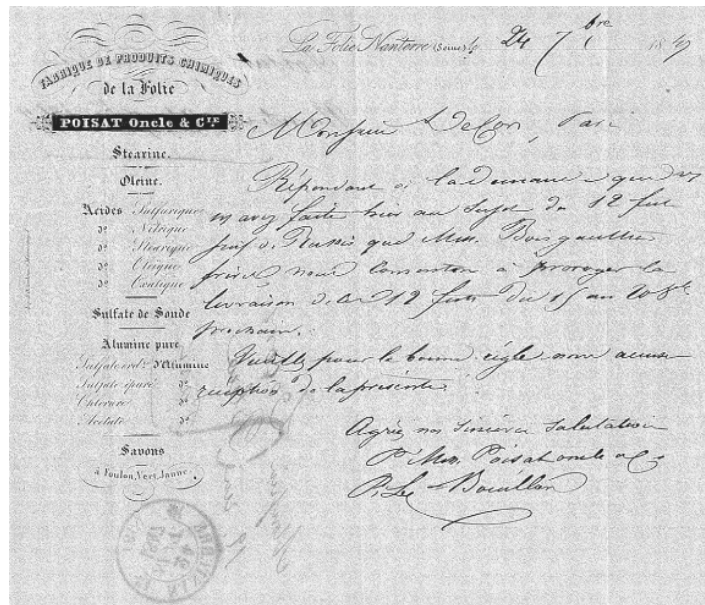 FABRIQUE DE PRODUITS CHIMIQUES
de la Folie
POISAT Oncle & Cie
Stearine.
Oleine.
Acides Sulfurique
do Nitrique
do Stearique
do Oleique
do Oxalique
Sulfate de Soude
Alumine pure
Sulfate ord.re d'Alumine
Sulfate épuré do
Chlorure do
Acetate do
Savons
à Foulon, Vert, Jaune.
La Folie Nanterre (Seine) le 24 7bre 1849
Monsieur
Répondant à la demande que vs
m'avez faite hier au sujet de 12 futs
suif de Russie que Mrs. Boisgaultier
frères nous consentons à proroger la
livraison de ces 12 futs du 15 au 20 8bre
prochain.
Veuillez pour la bonne règle nous accuser
réception de la présente.
Agréez nos sincères salutations
Pr Mrs. Poisat oncle & Co